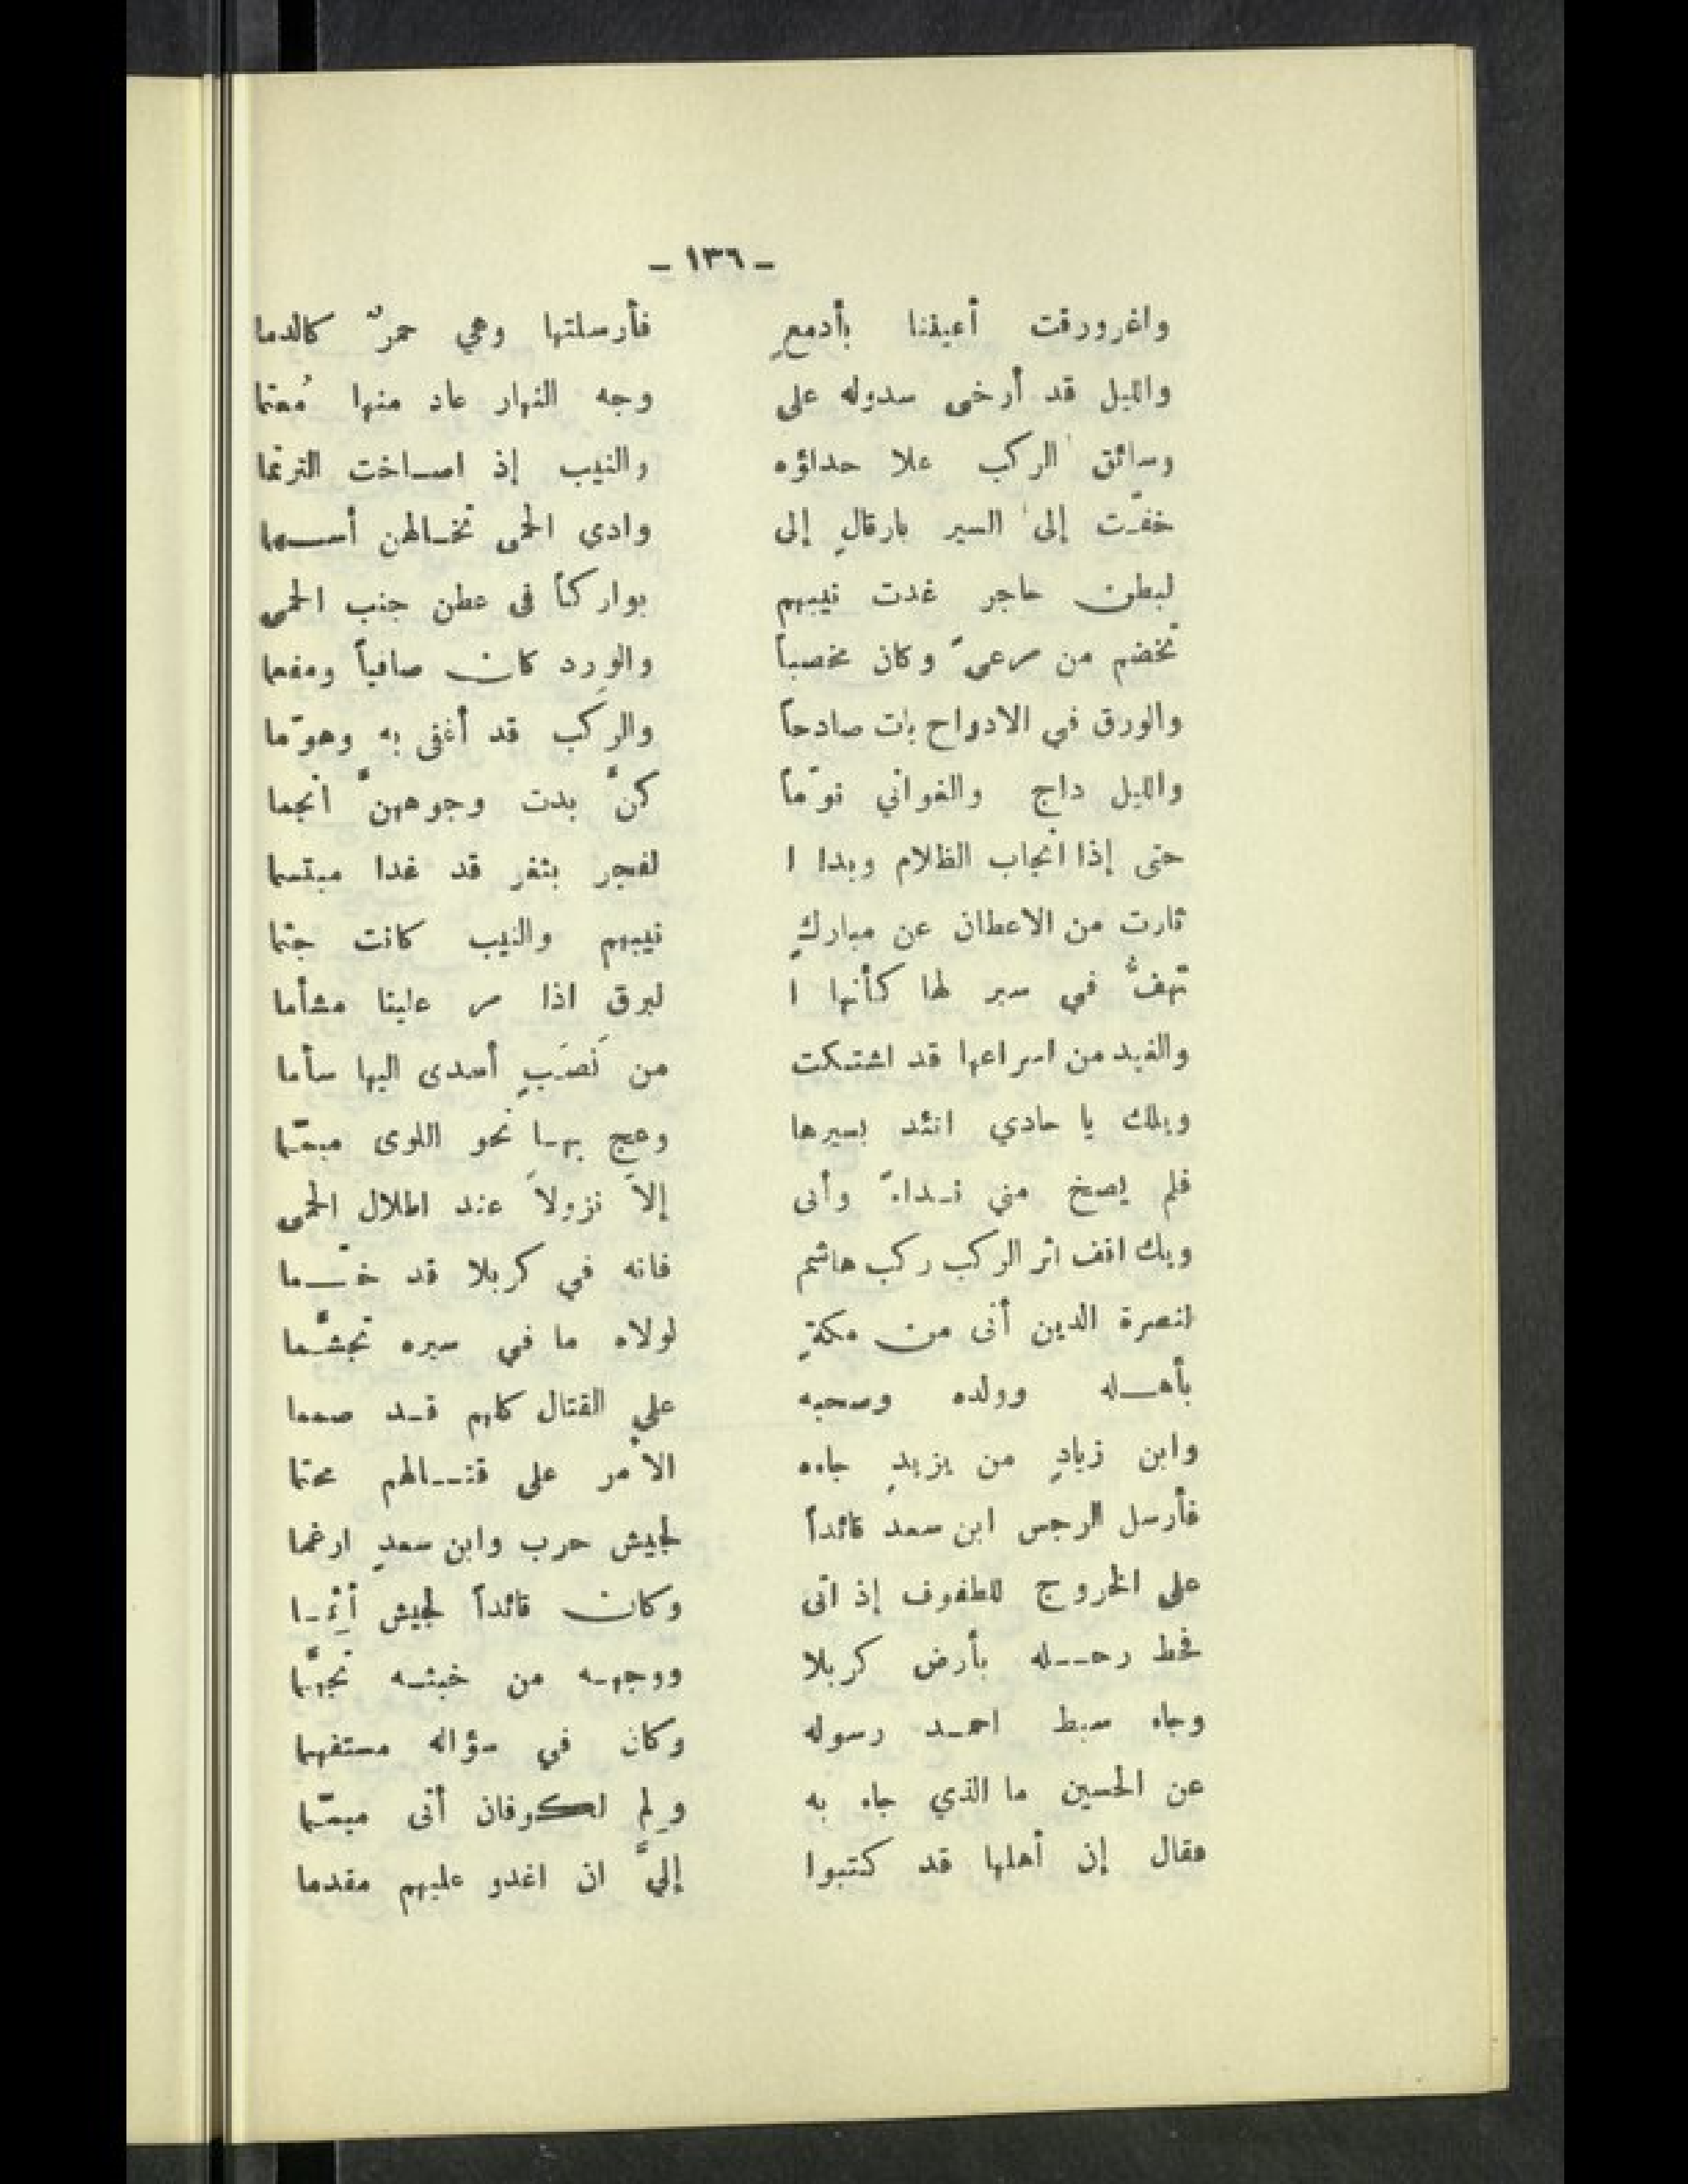 - ١٣٦ -
واغرورقت أعيننا بأدمعٍ فأرسلتها وهي حمرٌ كالدما
والليل قد أرخى سدوله على وجه النهار عاد منها مُعتما
وسائق الركب علا حداؤه والنيب إذ اصاخت الترنما
خفّت إلى السير بارقالٍ إلى وادي الحمى تخالهن أسهما
لبطن حاجر غدت نيبهم بواركاً في عطن جنب الحمى
تخضم من مرعىً وكان مخصباً والورد كان صافياً ومفعما
والورق في الادواح بات صادحاً والركب قد أغفى به وهوّما
والليل داج والغواني نوّماً كنَّ بدت وجوههنَّ انجما
حتى إذا انجاب الظلام وبدا ا لفجر بثغر قد غدا مبتسما
ثارت من الاعطان عن مباركٍ نيبهم والنيب كانت جثما
تهفُّ في سير لها كأنها ا لبرق اذا مر علينا مشأما
والغيد من اسراعها قد اشتكت من نَصَبٍ أسدى اليها سأما
ويلك يا حادي اتئد بسيرها وعج بها نحو اللوى ميمّما
فلم يصخ مني نداءً وأبى إلاَّ نزولاً عند اطلال الحمى
ويك اقف اثر الركب ركب هاشم فانه في كربلا قد خيّما
لنصرة الدين أتى من مكةٍ لولاه ما في سيره تجشّما
بأهله وولده وصحبه على القتال كلهم قد صمما
وابن زيادٍ من يزيدٍ جاءه الأمر على قتالهم محتما
فأرسل الرجس ابن سعد قائداً لجيش حرب وابن سعدٍ ارغما
على الخروج للطفوف إذ اتى وكان قائداً لجيش أَثِما
فحط رحله بأرض كربلا ووجهه من خبثه تجهّما
وجاء سبط احمد رسوله وكان في سؤاله مستفهما
عن الحسين ما الذي جاء به ولِم لكوفان أتى ميمّما
فقال إن أهلها قد كتبوا إليَّ ان اغدو عليهم مقدما